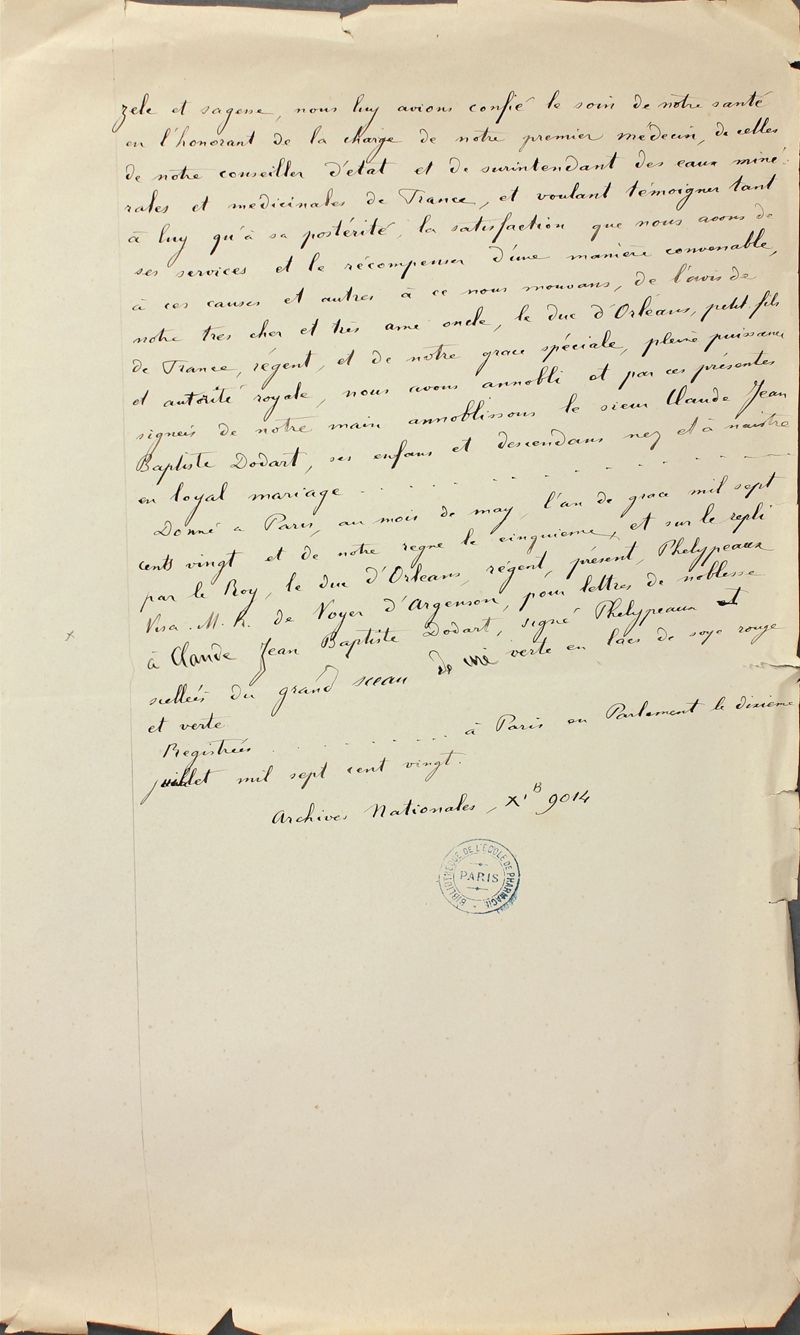 zele et sagesse, nous luy avions confié le soin de notre santé
en l'honorant de la charge de notre premier médecin, de celles
de notre conseiller d'état et de surintendant des eaux miné-
rales et medicinales de France, et voulant témoigner tant
à luy qu'à sa postérité, la satisfaction que nous avons de
ses services et le récompenser d'une manière convenable,
à ces causes et autres à ce nous mouvans, de l'avis de
notre tres cher et très amé oncle, le duc d'Orléans, petit fils
de France, régent, et de notre grace spéciale, pleine puissance
et autorité royale, nous avons annobli et par ces présentes
signées de notre main annoblissons le sieur Claude Jean
Baptiste Dodart, ses enfans et descendans nez et à naistre
en loyal mariage . . . . . . . . . . . .
Donné a Paris, au mois de may, l'an de grace mil sept
cents vingt et de notre regne le cinquieme, et sur le repli
par le Roy, le duc d'Orleans, régent, présent, Phelypeaux
Visa . M. R. de Voyer d'Argenson, pour lettres de noblesse
à Claude Jean Baptiste Dodart, signé Phelypeaux et
scellées du grand sceau de cire verte en lacs de soye rouge
et verte
Registrées . . . . . . . . à Paris en Parlement le dixieme
juillet mil sept cent vingt.
Archives Nationales, X¹ᴮ 9014
BIBLIOTHEQUE DE L'ECOLE DE PHARMACIE
PARIS